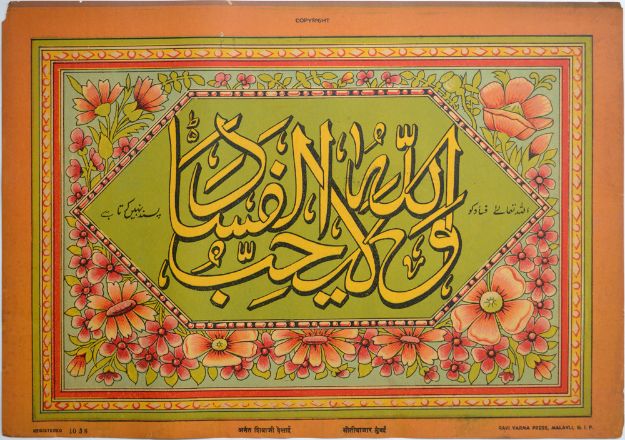 COPYRIGHT
والله لا يحبّ الفساد
اللہ تعالےٰ فساد کو
پسند نہیں کرتا ہے
REGISTERED 1038 अनंत शिवाजी देसाई मोतीबाजार मुंबई RAVI VARMA PRESS, MALAVLI, G. I. P.